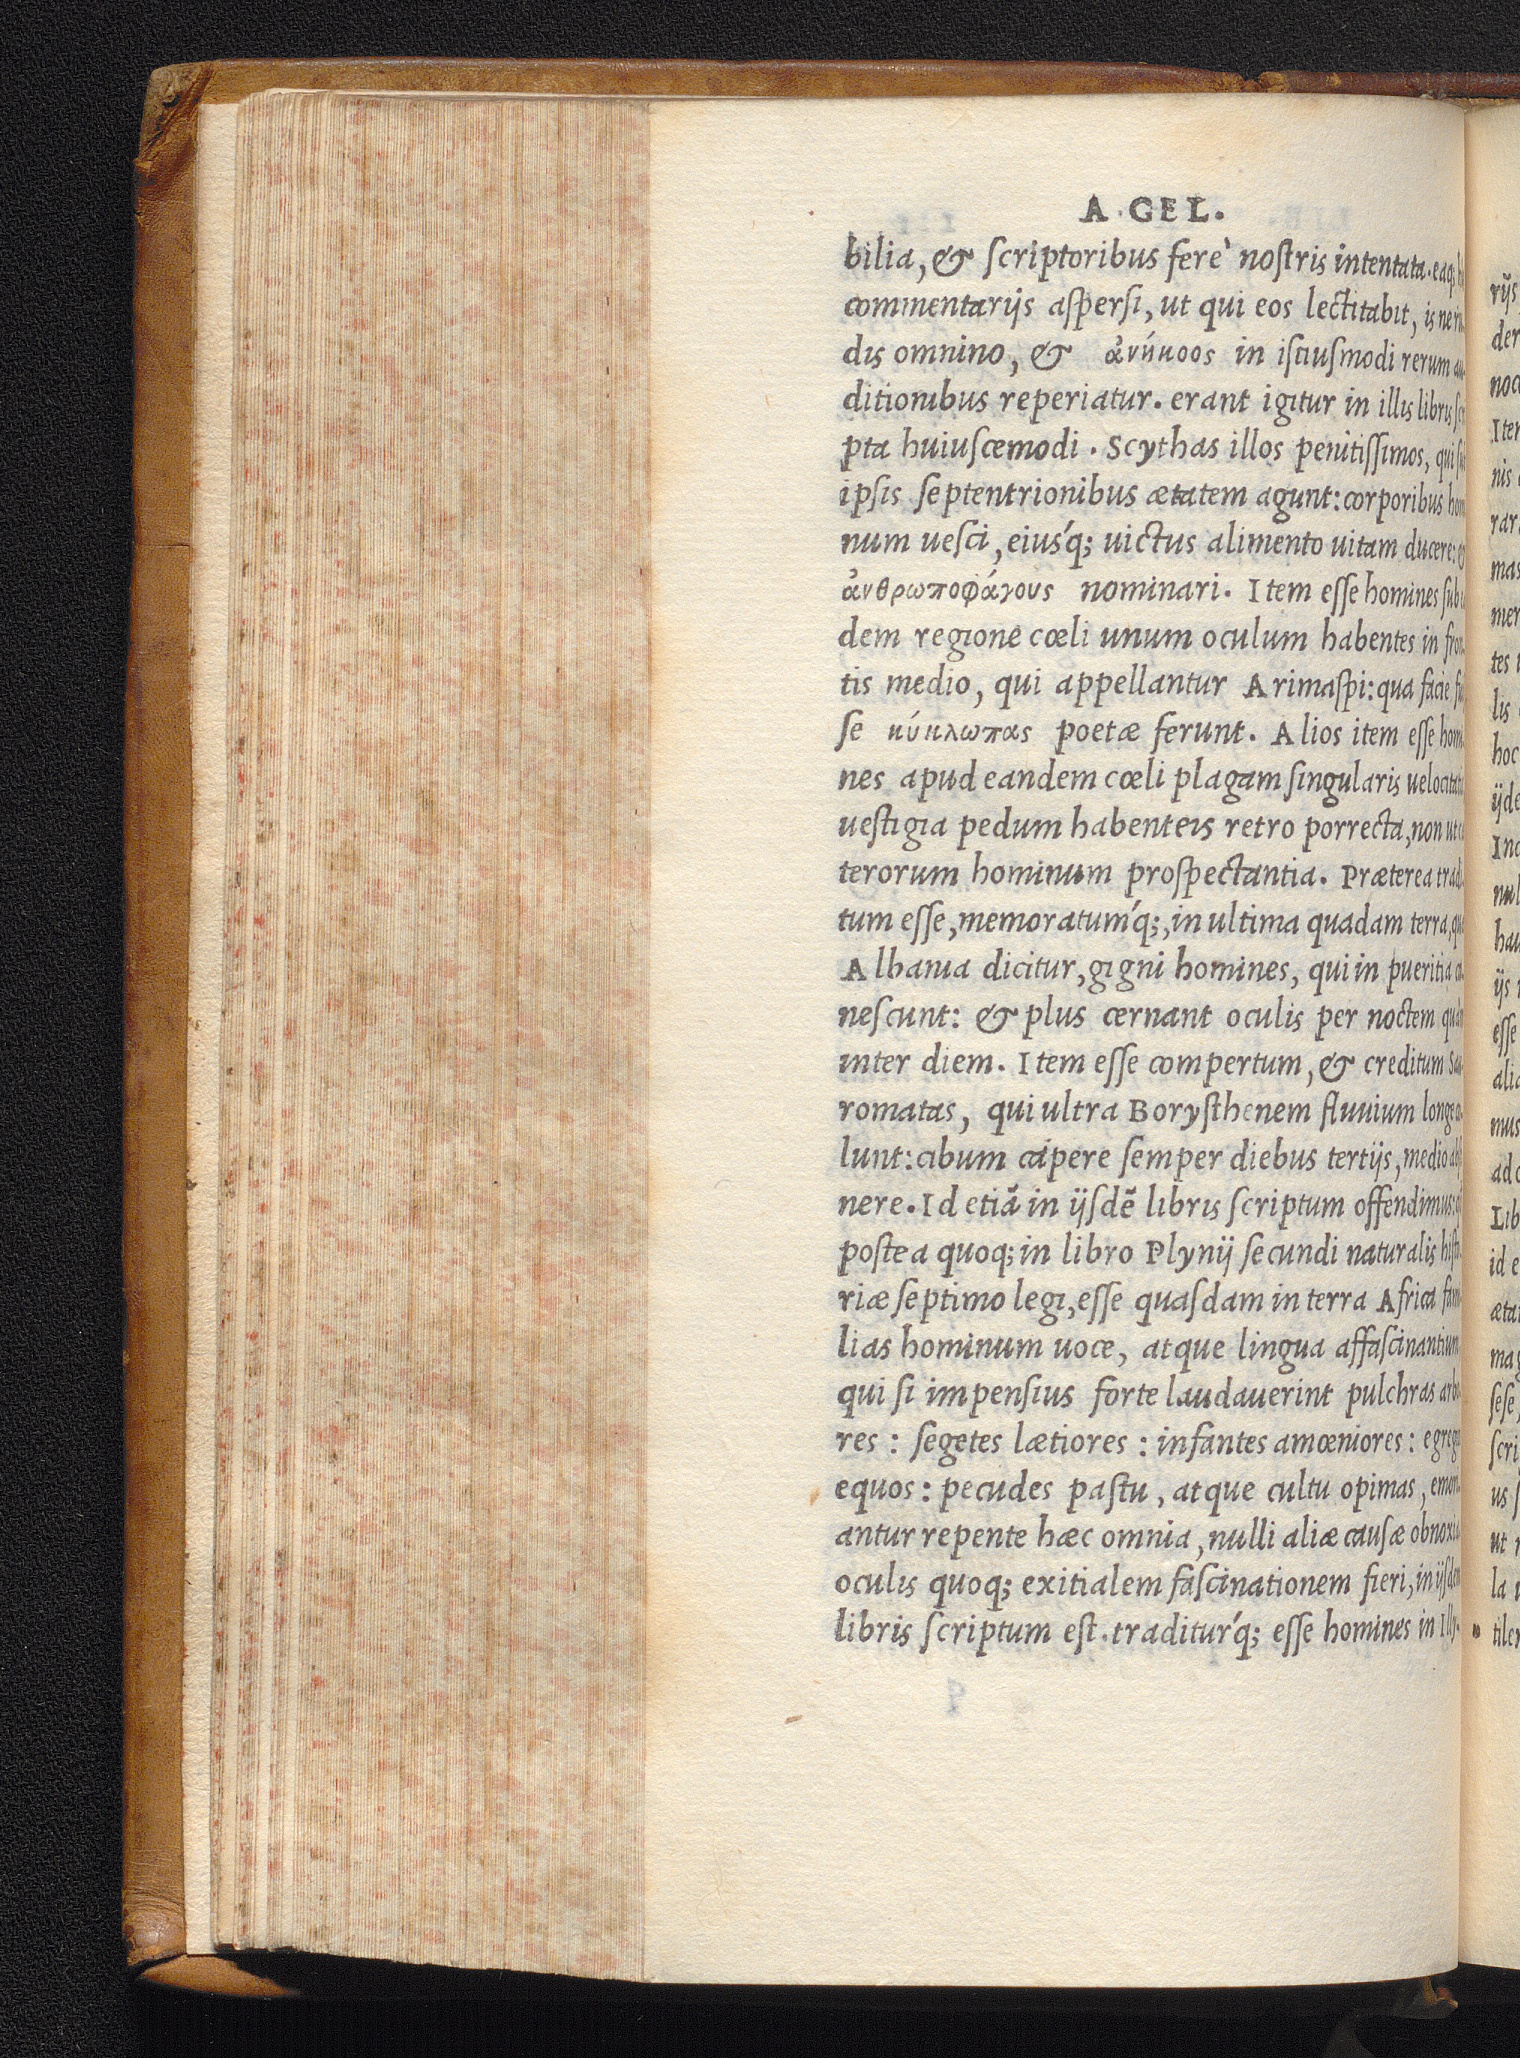 A. GEL.
bilia, & scriptoribus ferè nostris intentata. eaq;
commentarijs aspersi, ut qui eos lectitabit, is ne
dis omnino, & ἀνήκοος in istiusmodi rerum au
ditionibus reperiatur. erant igitur in illis libris
pta huiuscemodi. Scythas illos penitissimos, qui
ipsis septentrionibus ætatem agunt: corporibus
num uesci, eiusq́; uictus alimento uitam ducere:
ἀνθρωποφάγους nominari. Item esse homines sub
dem regione cœli unum oculum habentes in fron
tis medio, qui appellantur Arimaspi: qua facie
se κύκλωπας poetæ ferunt. Alios item esse homi
nes apud eandem cœli plagam singularis uelocitatis
uestigia pedum habenteis retro porrecta, non ut
terorum hominum prospectantia. Præterea tradi
tum esse, memoratumq́;, in ultima quadam terra,
Albania dicitur, gigni homines, qui in pueritia
nescunt: & plus cernant oculis per noctem quàm
inter diem. Item esse compertum, & creditum Sau
romatas, qui ultra Borysthenem fluuium longe
lunt: cibum capere semper diebus tertijs, medio
nere. Id etiã in ijsdẽ libris scriptum offendimus:
postea quoq; in libro Plynij secundi naturalis histo
riæ septimo legi, esse quasdam in terra Africa
lias hominum uoce, atque lingua affascinantium
qui si impensius forte laudauerint pulchras arbo
res: segetes lætiores: infantes amœniores: egregi
equos: pecudes pastu, atque cultu opimas, emori
antur repente hæc omnia, nulli aliæ causæ obnoxia
oculis quoq; exitialem fascinationem fieri, in ijsdem
libris scriptum est. traditurq́; esse homines in Illy-